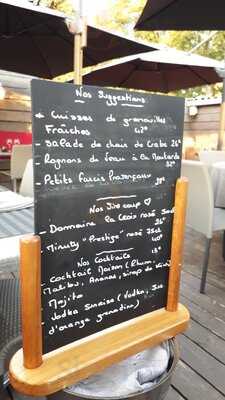 Nos Suggestions
* Cuisses de grenouilles
Fraîches 42€
- Salade de chair de Crabe 26€
- Rognons de Veau à la Moutarde
- Petits farcis Provençaux
Nos Vins coup ♡
- Domaine La Croix rosé 36€
- Minuty "Prestige" rosé 75cl
40€
Nos Cocktails 15€
- Cocktail Maison (Rhum,
Malibu, Ananas, sirop de
- Mojito
- Vodka Sunrise (Vodka, Jus
d'orange grenadine)